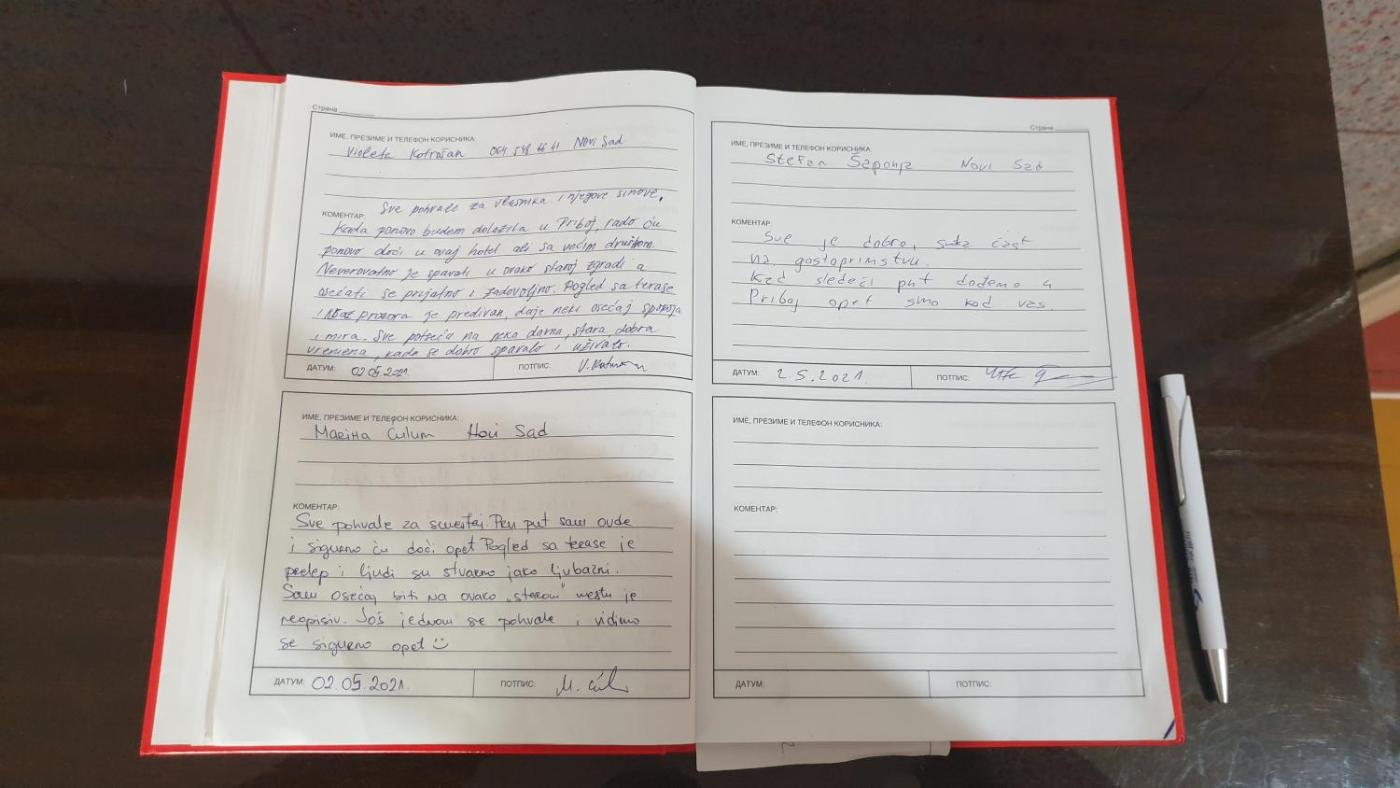 Страна
ИМЕ, ПРЕЗИМЕ И ТЕЛЕФОН КОРИСНИКА:
Violeta Kotrošan 064 548 Novi Sad
Sve pohvale za vlasnika i njegove sinove.
КОМЕНТАР:
Kada ponovo budem dolazila u Priboj, rado ću
ponovo doći u ovaj hotel ali sa većim društvom.
Neverovatno je spavati u ovako staroj zgradi a
osećati se prijatno i zadovoljno. Pogled sa terase
i prozora je predivan, daje neki osećaj spokoja
i mira. Sve potseća na neka davna, stara, dobra
vremena, kada se dobro spavalo i uživalo.
ДАТУМ: 02.05.2021 ПОТПИС:
ИМЕ, ПРЕЗИМЕ И ТЕЛЕФОН КОРИСНИКА:
Maріна Ćulum Novi Sad
КОМЕНТАР:
Sve pohvale za smestaj. Prvi put sam ovde
i sigurno ću doći opet. Pogled sa terase je
prelep i ljudi su stvarno jako ljubazni.
Sam osećaj biti na ovako „starom" mestu je
neopisiv. Još jednom sve pohvale i vidimo
se sigurno opet
ДАТУМ: 02.05.2021. ПОТПИС:
Страна
ИМЕ, ПРЕЗИМЕ И ТЕЛЕФОН КОРИСНИКА:
Stefan Šaponja Novi Sad
КОМЕНТАР:
Sve je dobro, svaka čast
na gostoprimstvu.
Kad sledeći put dođemo u
Priboj opet smo kod vas.
ДАТУМ: 2.5.2021. ПОТПИС:
ИМЕ, ПРЕЗИМЕ И ТЕЛЕФОН КОРИСНИКА:
КОМЕНТАР:
ДАТУМ: ПОТПИС: